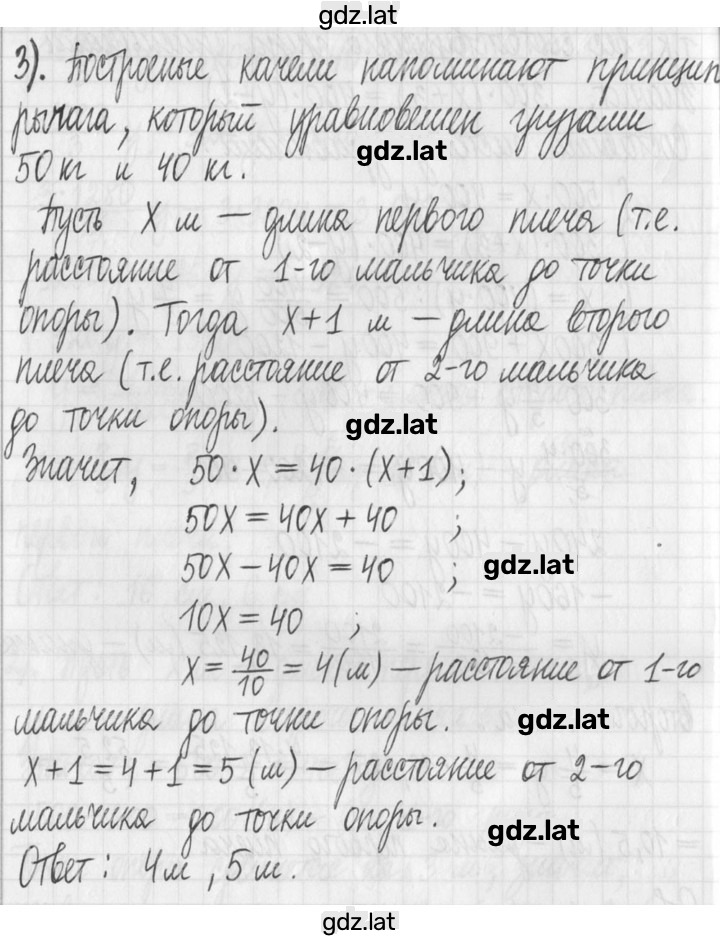 gdz.lat
3). Построеные качели напоминают принцип
рычага, который уравновешен грузами
gdz.lat
50 кг и 40 кг.
Пусть X м – длина первого плеча (т.е.
расстояние от 1-го мальчика до точки
опоры). Тогда X+1 м – длина второго
плеча (т.е. расстояние от 2-го мальчика
до точки опоры).
gdz.lat
Значит, 50·X = 40·(X+1);
50X = 40X + 40 ;
50X – 40X = 40 ;
gdz.lat
10X = 40 ;
X = 40/10 = 4(м) – расстояние от 1-го
мальчика до точки опоры.
gdz.lat
X+1 = 4+1 = 5 (м) – расстояние от 2-го
мальчика до точки опоры.
gdz.lat
Ответ: 4м, 5м.
gdz.lat